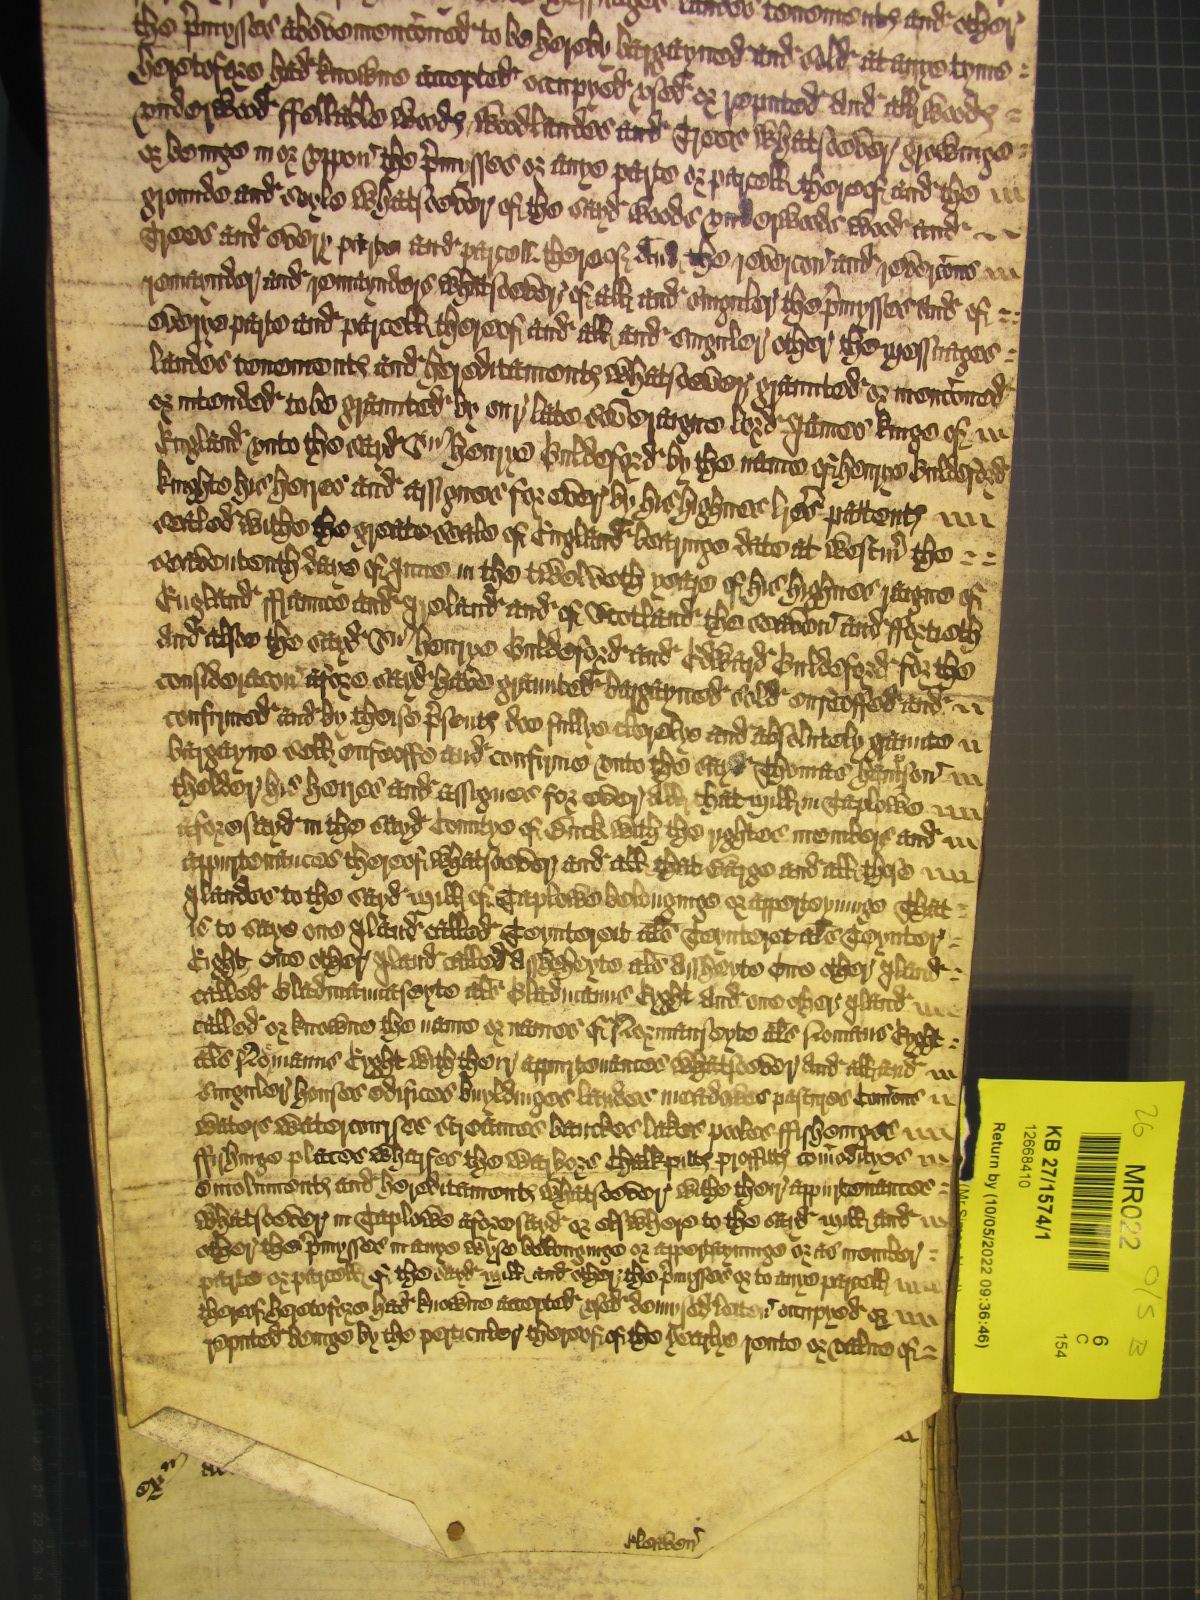 messuages landes tenementes and other
the p'mysses abovemencōned to be hereby bargayned and sold at anye tyme
heretofore had knowne accepted occupyed vsed or reputed And all woodes
vnderwood ffellable woodes woodlandes and Trees whatsoever growinge
or beinge in or vppon the p'mysses or anye parte or parcell thereof and the
grounde and soyle whatsoever of the sayd woodes vnderwoodes wood and
Trees and every parte and parcell thereof And the revercon and revercōns
remaynder and remaynders whatsoever of all and singuler the p'mysses and of
everye parte and parcell thereof and all and singuler other the messuages
landes tenementes and hereditamentes whatsoever graunted or mencōned
or intended to be graunted by our late soveraigne lord James kinge of
England vnto the sayd Sir Henrye Guildeford by the name of Henrye Guildeford
knighte his heires and assignes for ever by his highnes l'res pattentes
sealed withe the greate seale of England bearinge date at westm' the
seavententh daye of June in the twelveth yeare of his highnes raigne of
England ffraunce and Ireland and of Scotland the seaven and ffortieth
And also the sayd Sir Henrye Guildeford and Edward Guildeford for the
consideracon afore sayd have graunted bargayned sold enfeoffed and
confirmed and by theise p'sentes doe fullye clerelye and absolutely graunte
bargayne sell enfeoffe and confirme vnto the sayd Thomas Hampson
thelder his heires and assignes for ever All that mill in Taplowe
aforesayd in the sayd Countye of Buck with the rightes members and
appurtenances thereof whatsoever and all that and all those
Ilandes to the sayd mill of Taplowe belonginge or apperteyninge That
is to saye one Iland called Teyntereit als Teynteret als Teynter
Eight One other Iland called Assheyte als Assheyte One other Iland
called Gladmanseyte als Gladmanns Eyght And one other Iland
called or knowne the name or names of Normanseyte als Nomans Eyght
als Nomanns Eyght with their appurtenances whatsoever And all and
singuler houses edifices buyldinges landes meadowes pastures Comōns
waters watercourses streames banckes lakes pooles ffishenges
ffishinge places wharfes the chalkpittes proffittes comodityes
Emolumentes and hereditamentes whatsoever withe their appurtenances
whatsoever in Taplowe aforesayd or elswhere to the sayd mill and
other the p'mysses in anye wyse belonginge or apperteyninge or as member
parte or parcell of the sayd mill and other the p'misses or to anye parcell
thereof heretofore had knowne accepted vsed demysed letten occupyed or
reputed beinge by the perticuler thereof of the yearlye rente or value of
exr